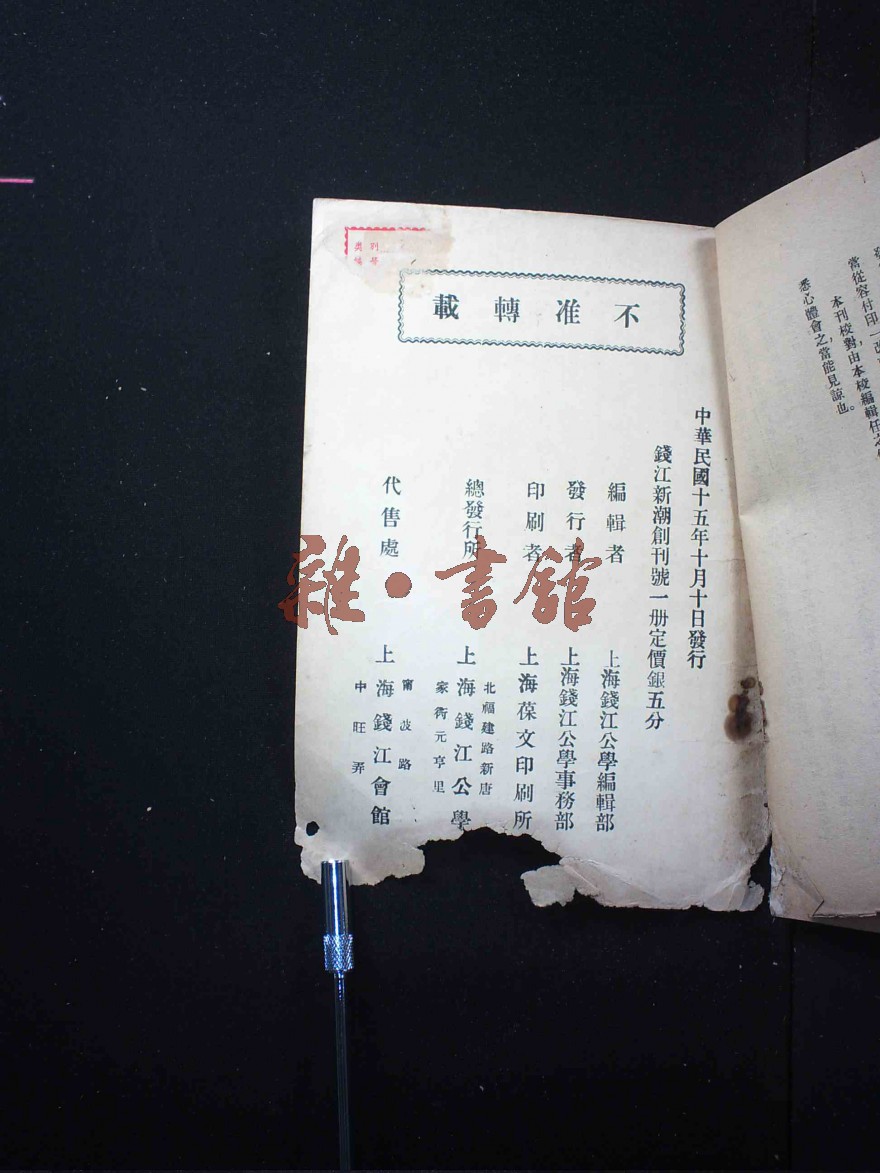 當從容付印一
本刊校對,由本校編輯任
悉心體會之,當能見諒也。
不准轉載
中華民國十五年十月十日發行
錢江新潮創刊號一册定價銀五分
編輯者 上海錢江公學編輯部
發行者 上海錢江公學事務部
印刷者 上海葆文印刷所
總發行所 上海錢江公學
北福建路新唐
家衖元亨里
代售處 上海錢江會館
甯波路
中旺弄
雜·書館